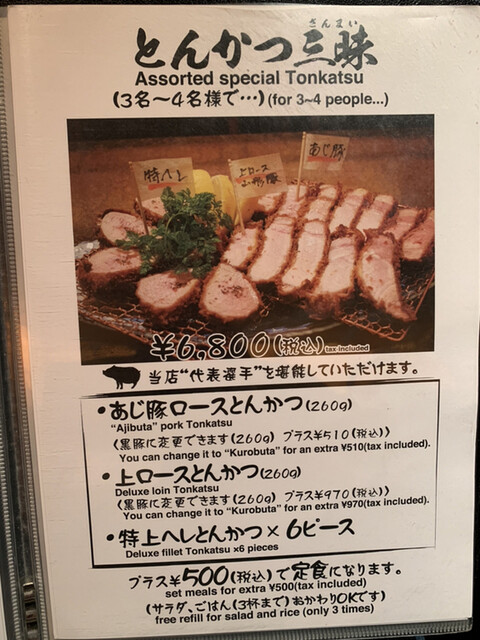 さんまい
とんかつ三昧
Assorted special Tonkatsu
(3名〜4名様で…)(for 3~4 people...)
特ヘレ
上ロース
山形豚
あじ豚
¥6,800(税込)tax included
当店"代表選手"を堪能していただけます。
・あじ豚ロースとんかつ(260g)
"Ajibuta" pork Tonkatsu
〈黒豚に変更できます(260g) プラス¥510(税込)〉
You can change it to "Kurobuta" for an extra ¥510(tax included).
・上ロースとんかつ(260g)
Deluxe loin Tonkatsu
〈黒豚に変更できます(260g) プラス¥970(税込)〉
You can change it to "Kurobuta" for an extra ¥970(tax included).
・特上ヘレとんかつ×6ピース
Deluxe fillet Tonkatsu ×6 pieces
プラス¥500(税込)で定食になります。
set meals for extra ¥500(tax included)
(サラダ、ごはん(3杯まで)おかわりOKです)
free refill for salad and rice (only 3 times)